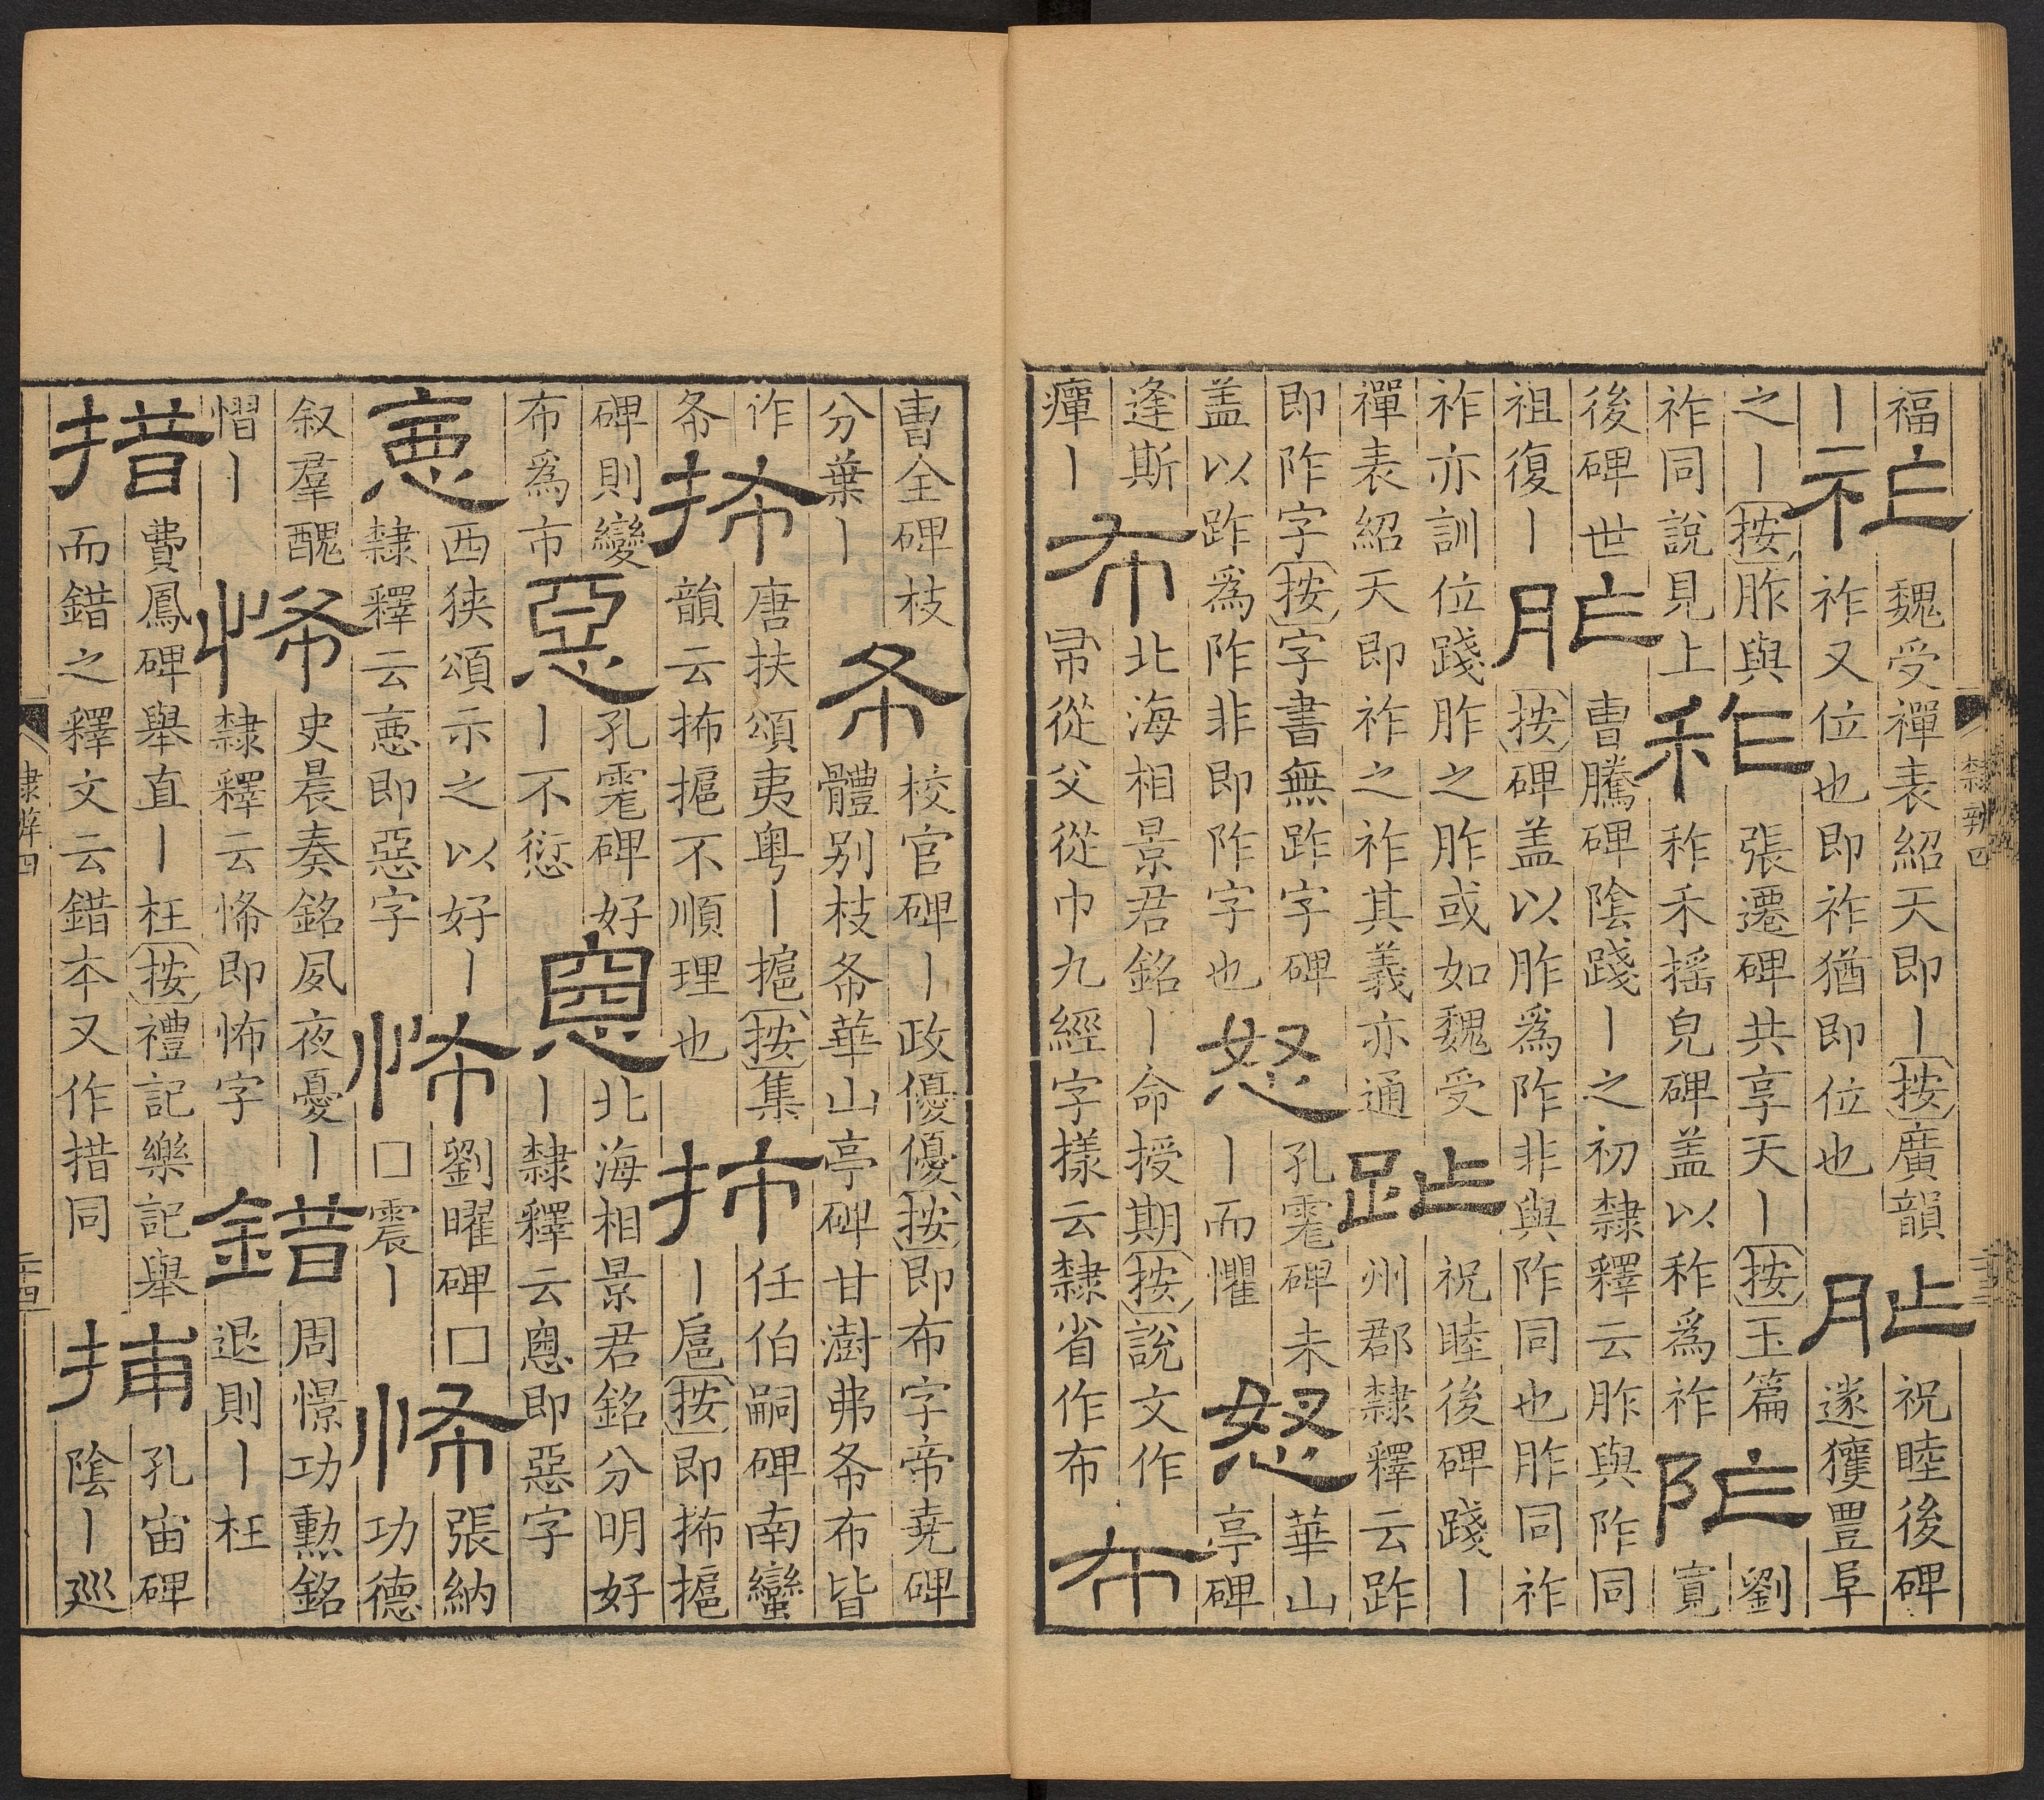 隸辨四
福
丨
祚
魏受禪表紹天即丨按廣韻
祚又位也即祚猶即位也
胙
祝睦後碑
遂獲豐阜
之丨按胙與
祚同說見上
秨
張遷碑共享天丨按玉篇
秨禾搖皃碑盖以秨爲祚
阼
劉
寬
後碑世
祖復丨
胙
曹騰碑陰踐丨之初隸釋云胙與阼同
按碑盖以胙爲阼非與阼同也胙同祚
祚亦訓位踐胙之胙或如魏受
禪表紹天即祚之祚其義亦通
䟭
祝睦後碑踐丨
州郡隸釋云䟭
即阼字按字書無䟭字碑
盖以䟭爲阼非即阼字也
怒
孔彪碑未
丨而懼
怒
華山
亭碑
逢斯
癉丨
布
北海相景君銘丨命授期按說文作
㠽從父從巾九經字樣云隸省作布
布
曹全碑枝
分葉丨
㠽
校官碑丨政優優按即布字帝堯碑
體别枝㠽華山亭碑甘澍弗㠽布皆
作
㠽
抪
唐扶頌夷粤丨㨭按集
韻云抪㨭不順理也
抪
任伯嗣碑南蠻
丨扈按即抪㨭
碑則變
布爲市
惡
孔彪碑好
丨不愆
惡
北海相景君銘分明好
丨隸釋云即惡字
惡
西狹頌示之以好丨
隸釋云即惡字
怖
劉曜碑□
□震丨
怖
張納
功德
叙羣醜
慴丨
悕
史晨奏銘夙夜憂丨
隸釋云悕即怖字
錯
周憬功勳銘
退則丨枉
措
費鳳碑舉直丨枉按禮記樂記舉
而錯之釋文云錯本又作措同
捕
孔宙碑
陰丨巡
隸辨四
二十四